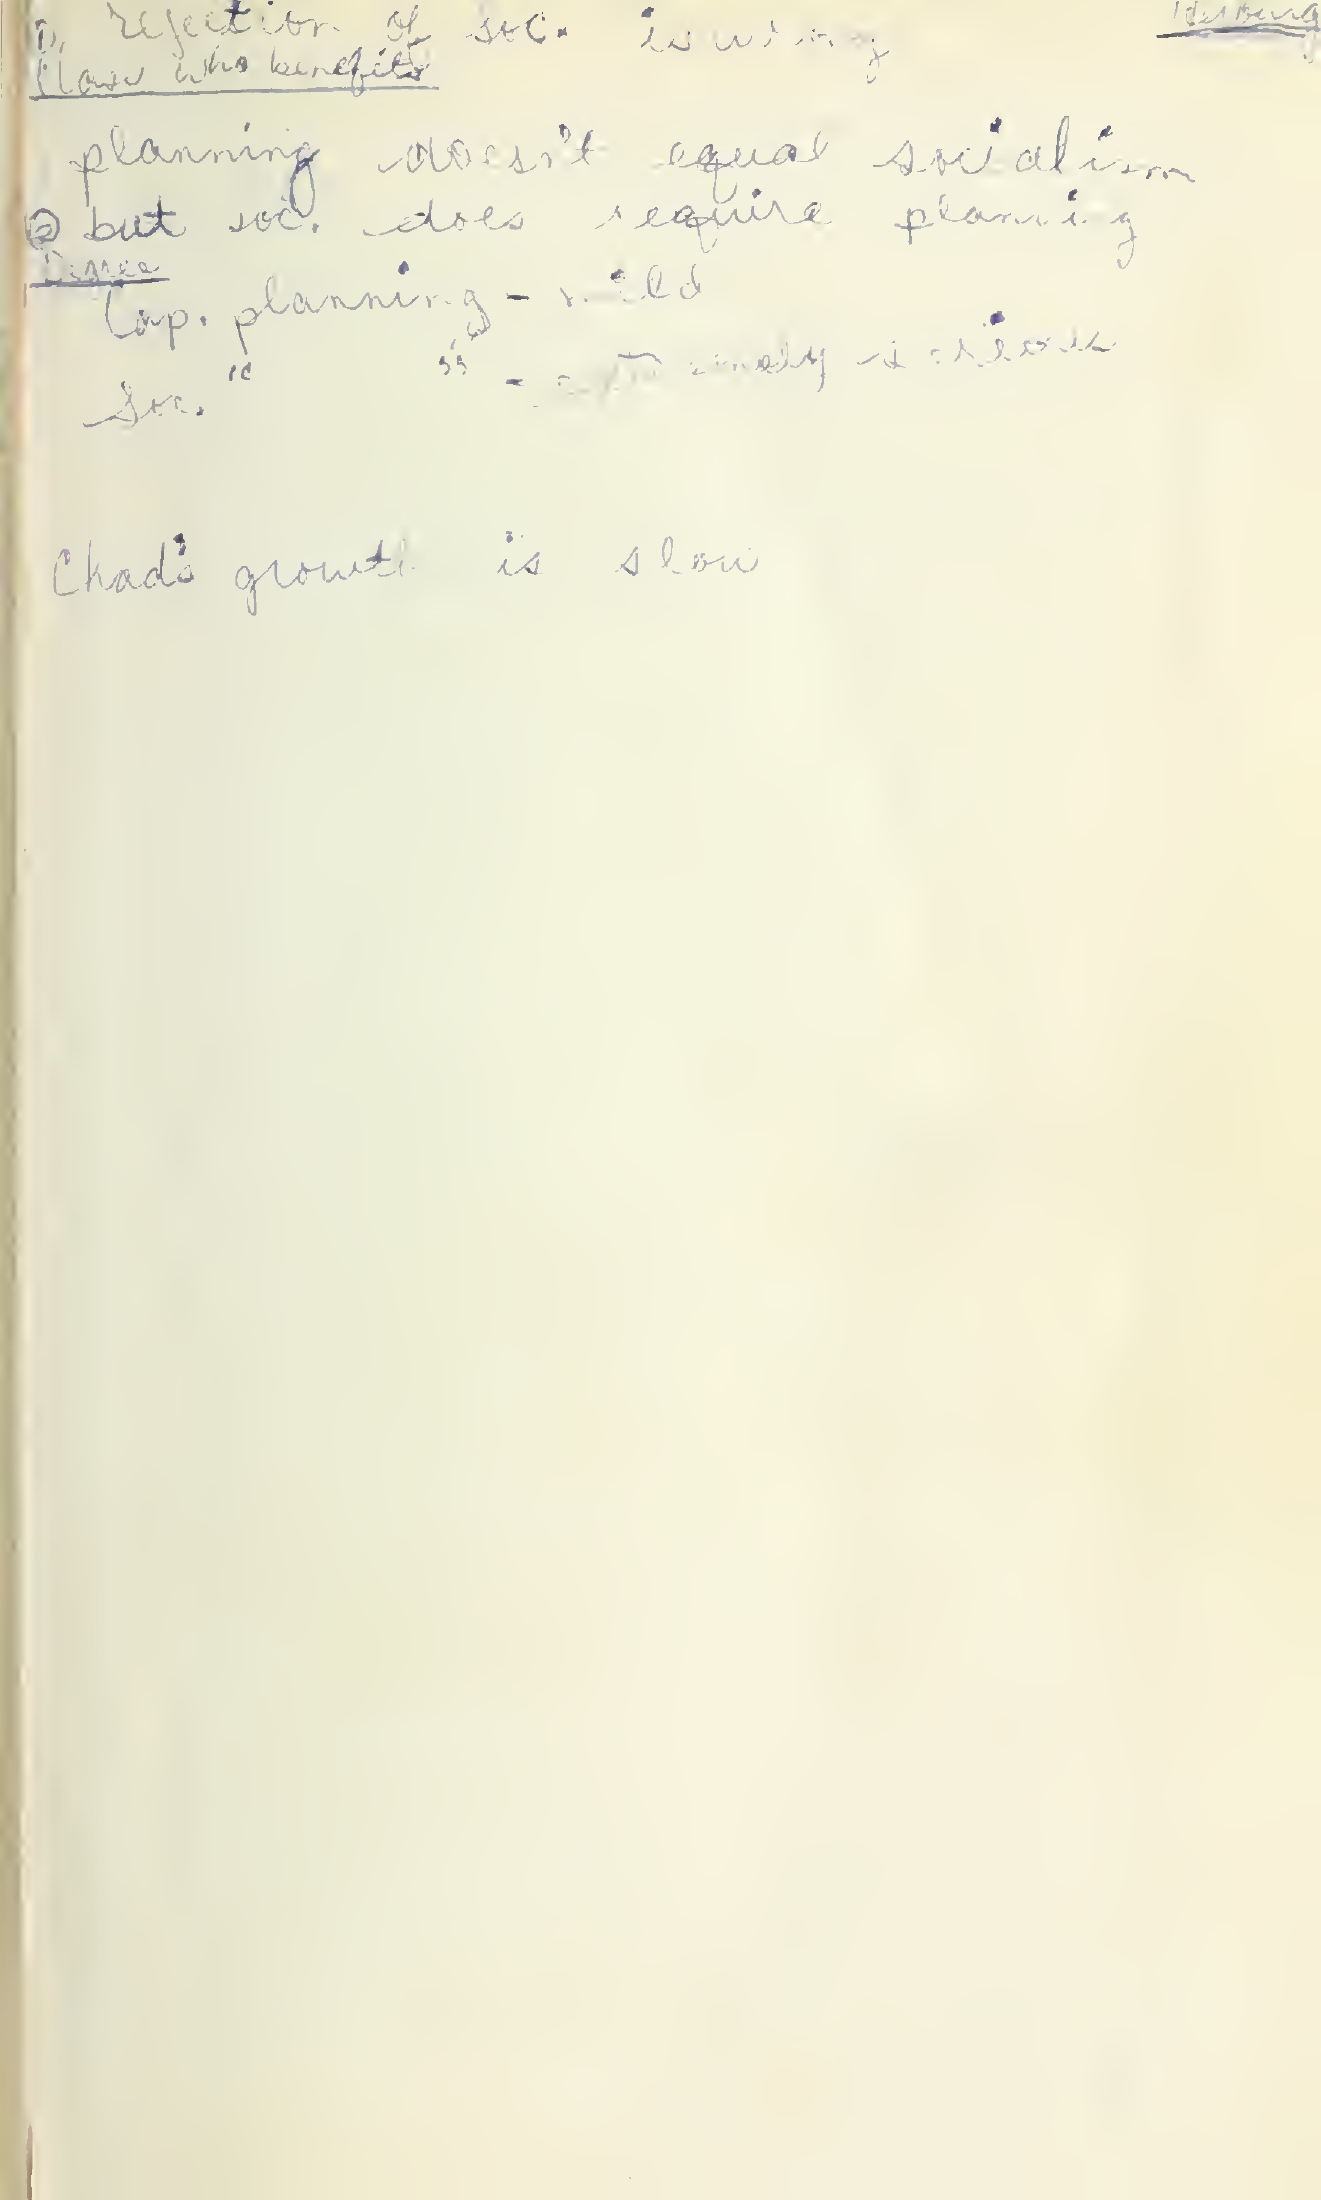 1). rejection of soc. is wrong
Class who benefits
planning doesn't equal socialism
② but soc. does require planning
Degree
Cap. planning - mild
Soc. " " - extremely serious
Chad's growth is slow